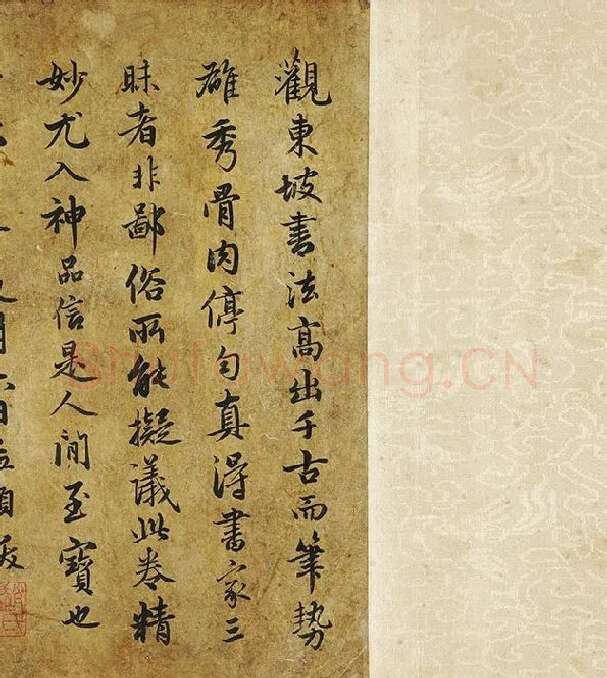 觀東坡書法高出千古而筆勢
雄秀骨肉停勻真得書家三
昧者非鄙俗所能擬議此卷精
妙尤入神品信是人間至寶也
月六日孟頫